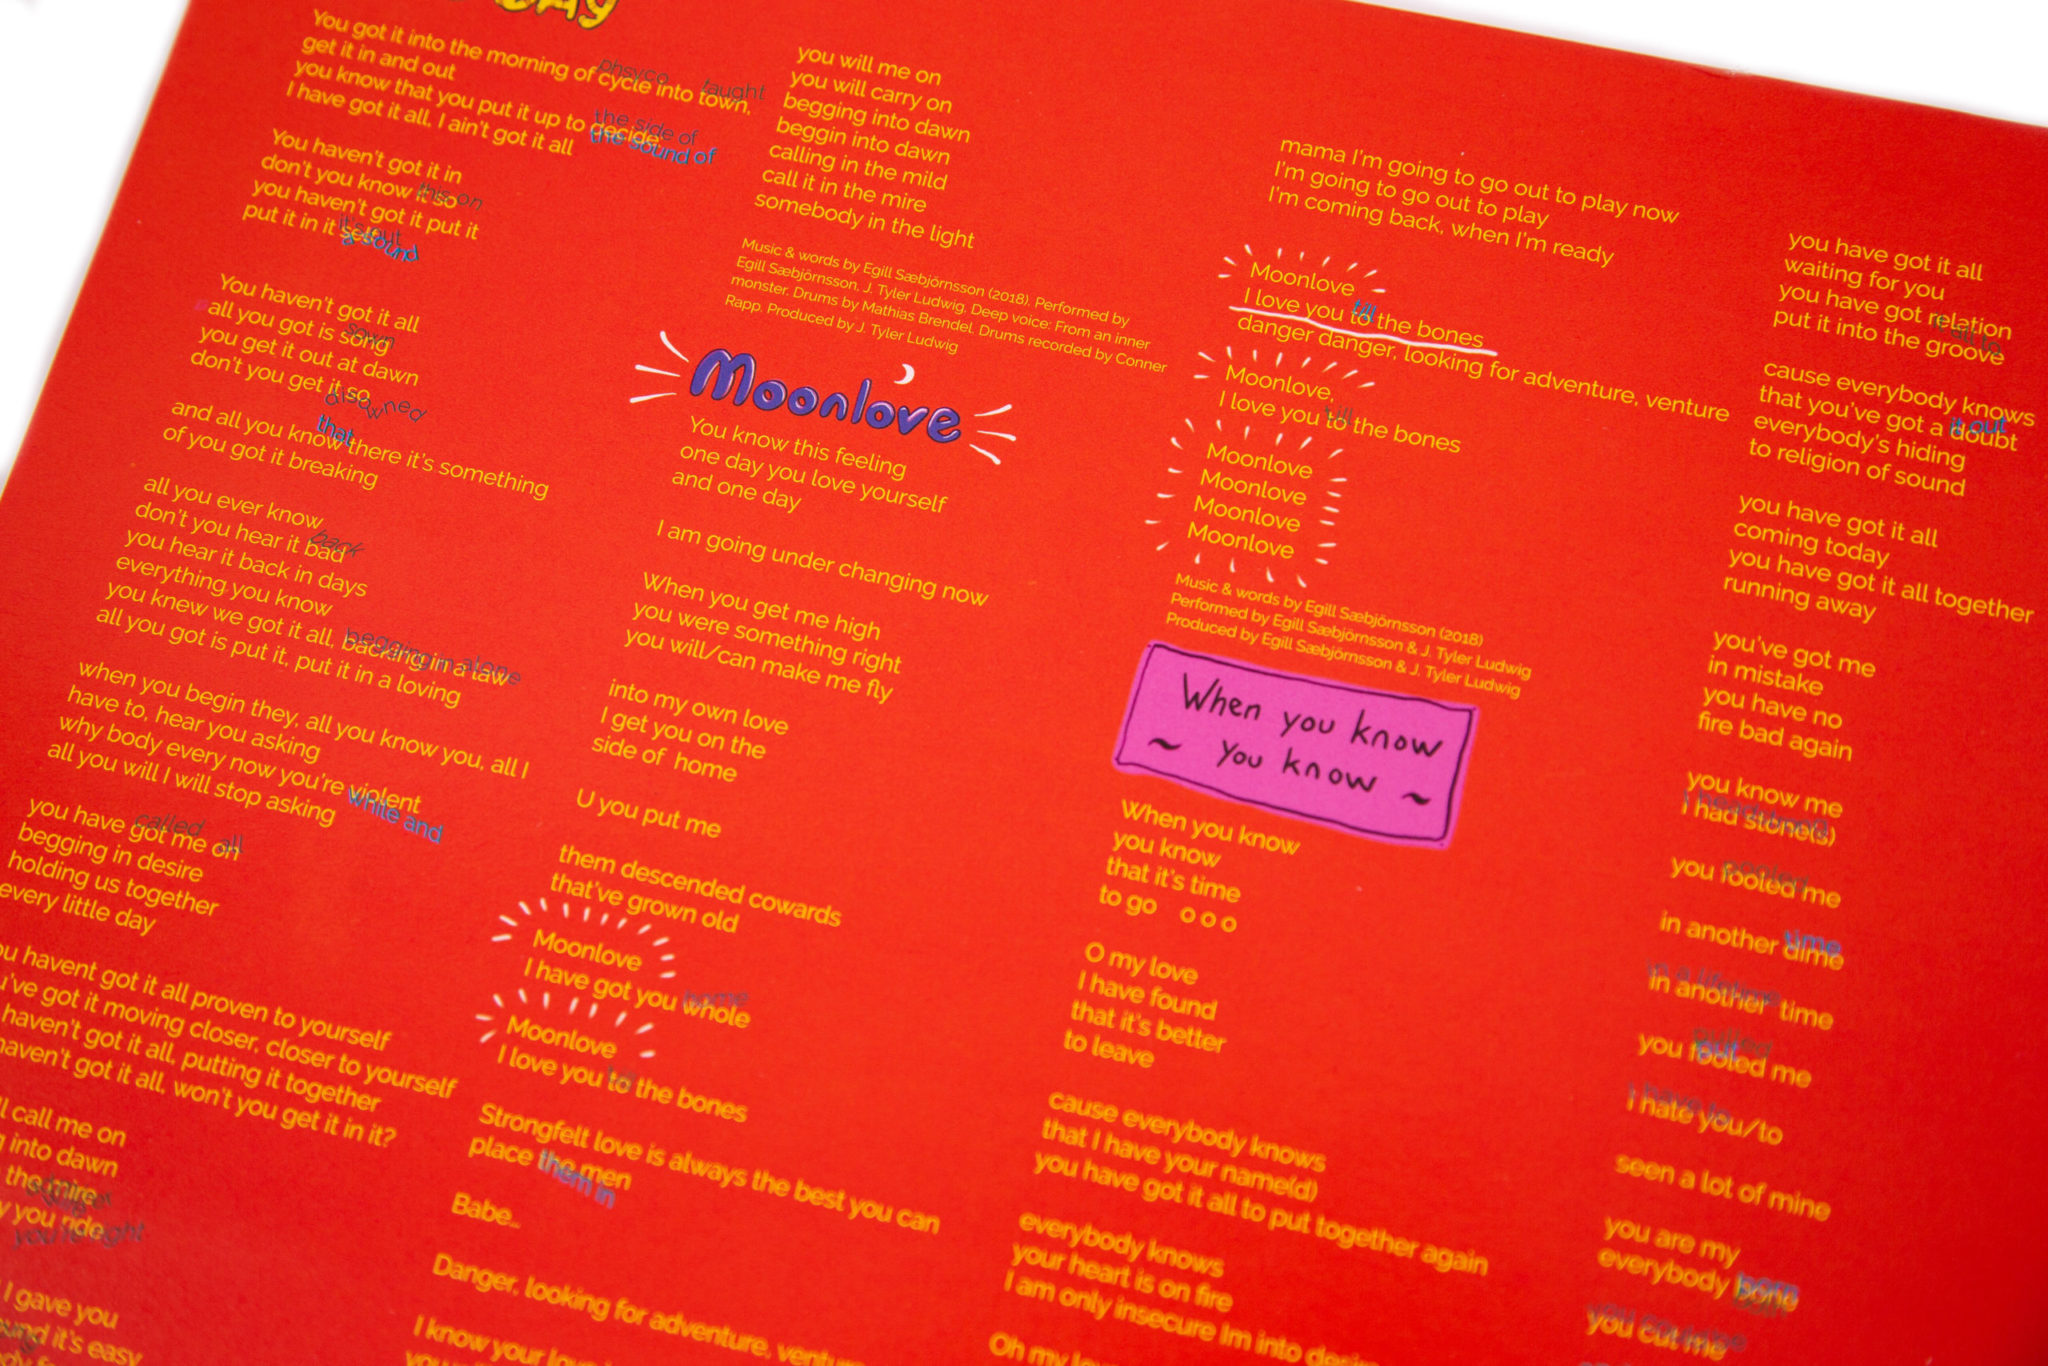 DAY
You got it into the morning of cycle into town,
phsyco taught
get it in and out
you know that you put it up to decide,
the side of
the sound of
I have got it all, I ain't got it all
You haven't got it in
don't you know it so
this on
you haven't got it put it
put it in it
it's out
a sound
You haven't got it all
all you got is song
sown
you get it out at dawn
don't you get it so
disowned
and all you know there it's something
that
of you got it breaking
all you ever know
don't you hear it bad
back
you hear it back in days
everything you know
you knew we got it all, backing in a law
begging in alone
all you got is put it, put it in a loving
when you begin they, all you know you, all I
have to, hear you asking
why body every now you're violent
while and
all you will I will stop asking
you have got me on
called all
begging in desire
holding us together
every little day
ou havent got it all proven to yourself
u've got it moving closer, closer to yourself
haven't got it all, putting it together
haven't got it all, won't you get it in it?
ll call me on
g into dawn
the mire
y you ride
you're right
I gave you
it's easy
you will me on
you will carry on
begging into dawn
beggin into dawn
calling in the mild
call it in the mire
somebody in the light
Music & words by Egill Sæbjörnsson (2018). Performed by
Egill Sæbjörnsson, J. Tyler Ludwig. Deep voice: From an inner
monster. Drums by Mathias Brendel. Drums recorded by Conner
Rapp. Produced by J. Tyler Ludwig
Moonlove
You know this feeling
one day you love yourself
and one day
I am going under changing now
When you get me high
you were something right
you will/can make me fly
into my own love
I get you on the
side of home
U you put me
them descended cowards
that've grown old
Moonlove
I have got you whole
home
Moonlove
I love you to the bones
till
Strongfelt love is always the best you can
place the men
them in
Babe..
Danger, looking for adventure, venture
I know your love
mama I'm going to go out to play now
I'm going to go out to play
I'm coming back, when I'm ready
Moonlove
I love you to the bones
till
danger danger, looking for adventure, venture
Moonlove,
I love you to the bones
till
Moonlove
Moonlove
Moonlove
Moonlove
Music & words by Egill Sæbjörnsson (2018)
Performed by Egill Sæbjörnsson & J. Tyler Ludwig
Produced by Egill Sæbjörnsson & J. Tyler Ludwig
When you know
~ you know ~
When you know
you know
that it's time
to go o o o
O my love
I have found
that it's better
to leave
cause everybody knows
that I have your name(d)
you have got it all to put together again
everybody knows
your heart is on fire
I am only insecure Im into
Oh my
you have got it all
waiting for you
you have got relation
it all to
put it into the groove
cause everybody knows
that you've got a doubt
it out
everybody's hiding
to religion of sound
you have got it all
coming today
you have got it all together
running away
you've got me
in mistake
you have no
fire bad again
you know me
I had stone(s)
you fooled me
in another dime
time
in another time
in a lifetime
you fooled me
pulled
put
I hate you/to
I have to
seen a lot of mine
you are my
everybody bone
born
you cut me
you could be